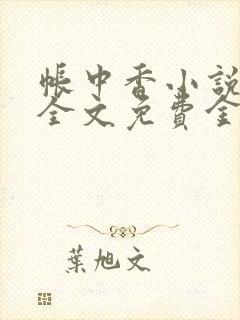 帳中香小説
全文免費全
葉旭文